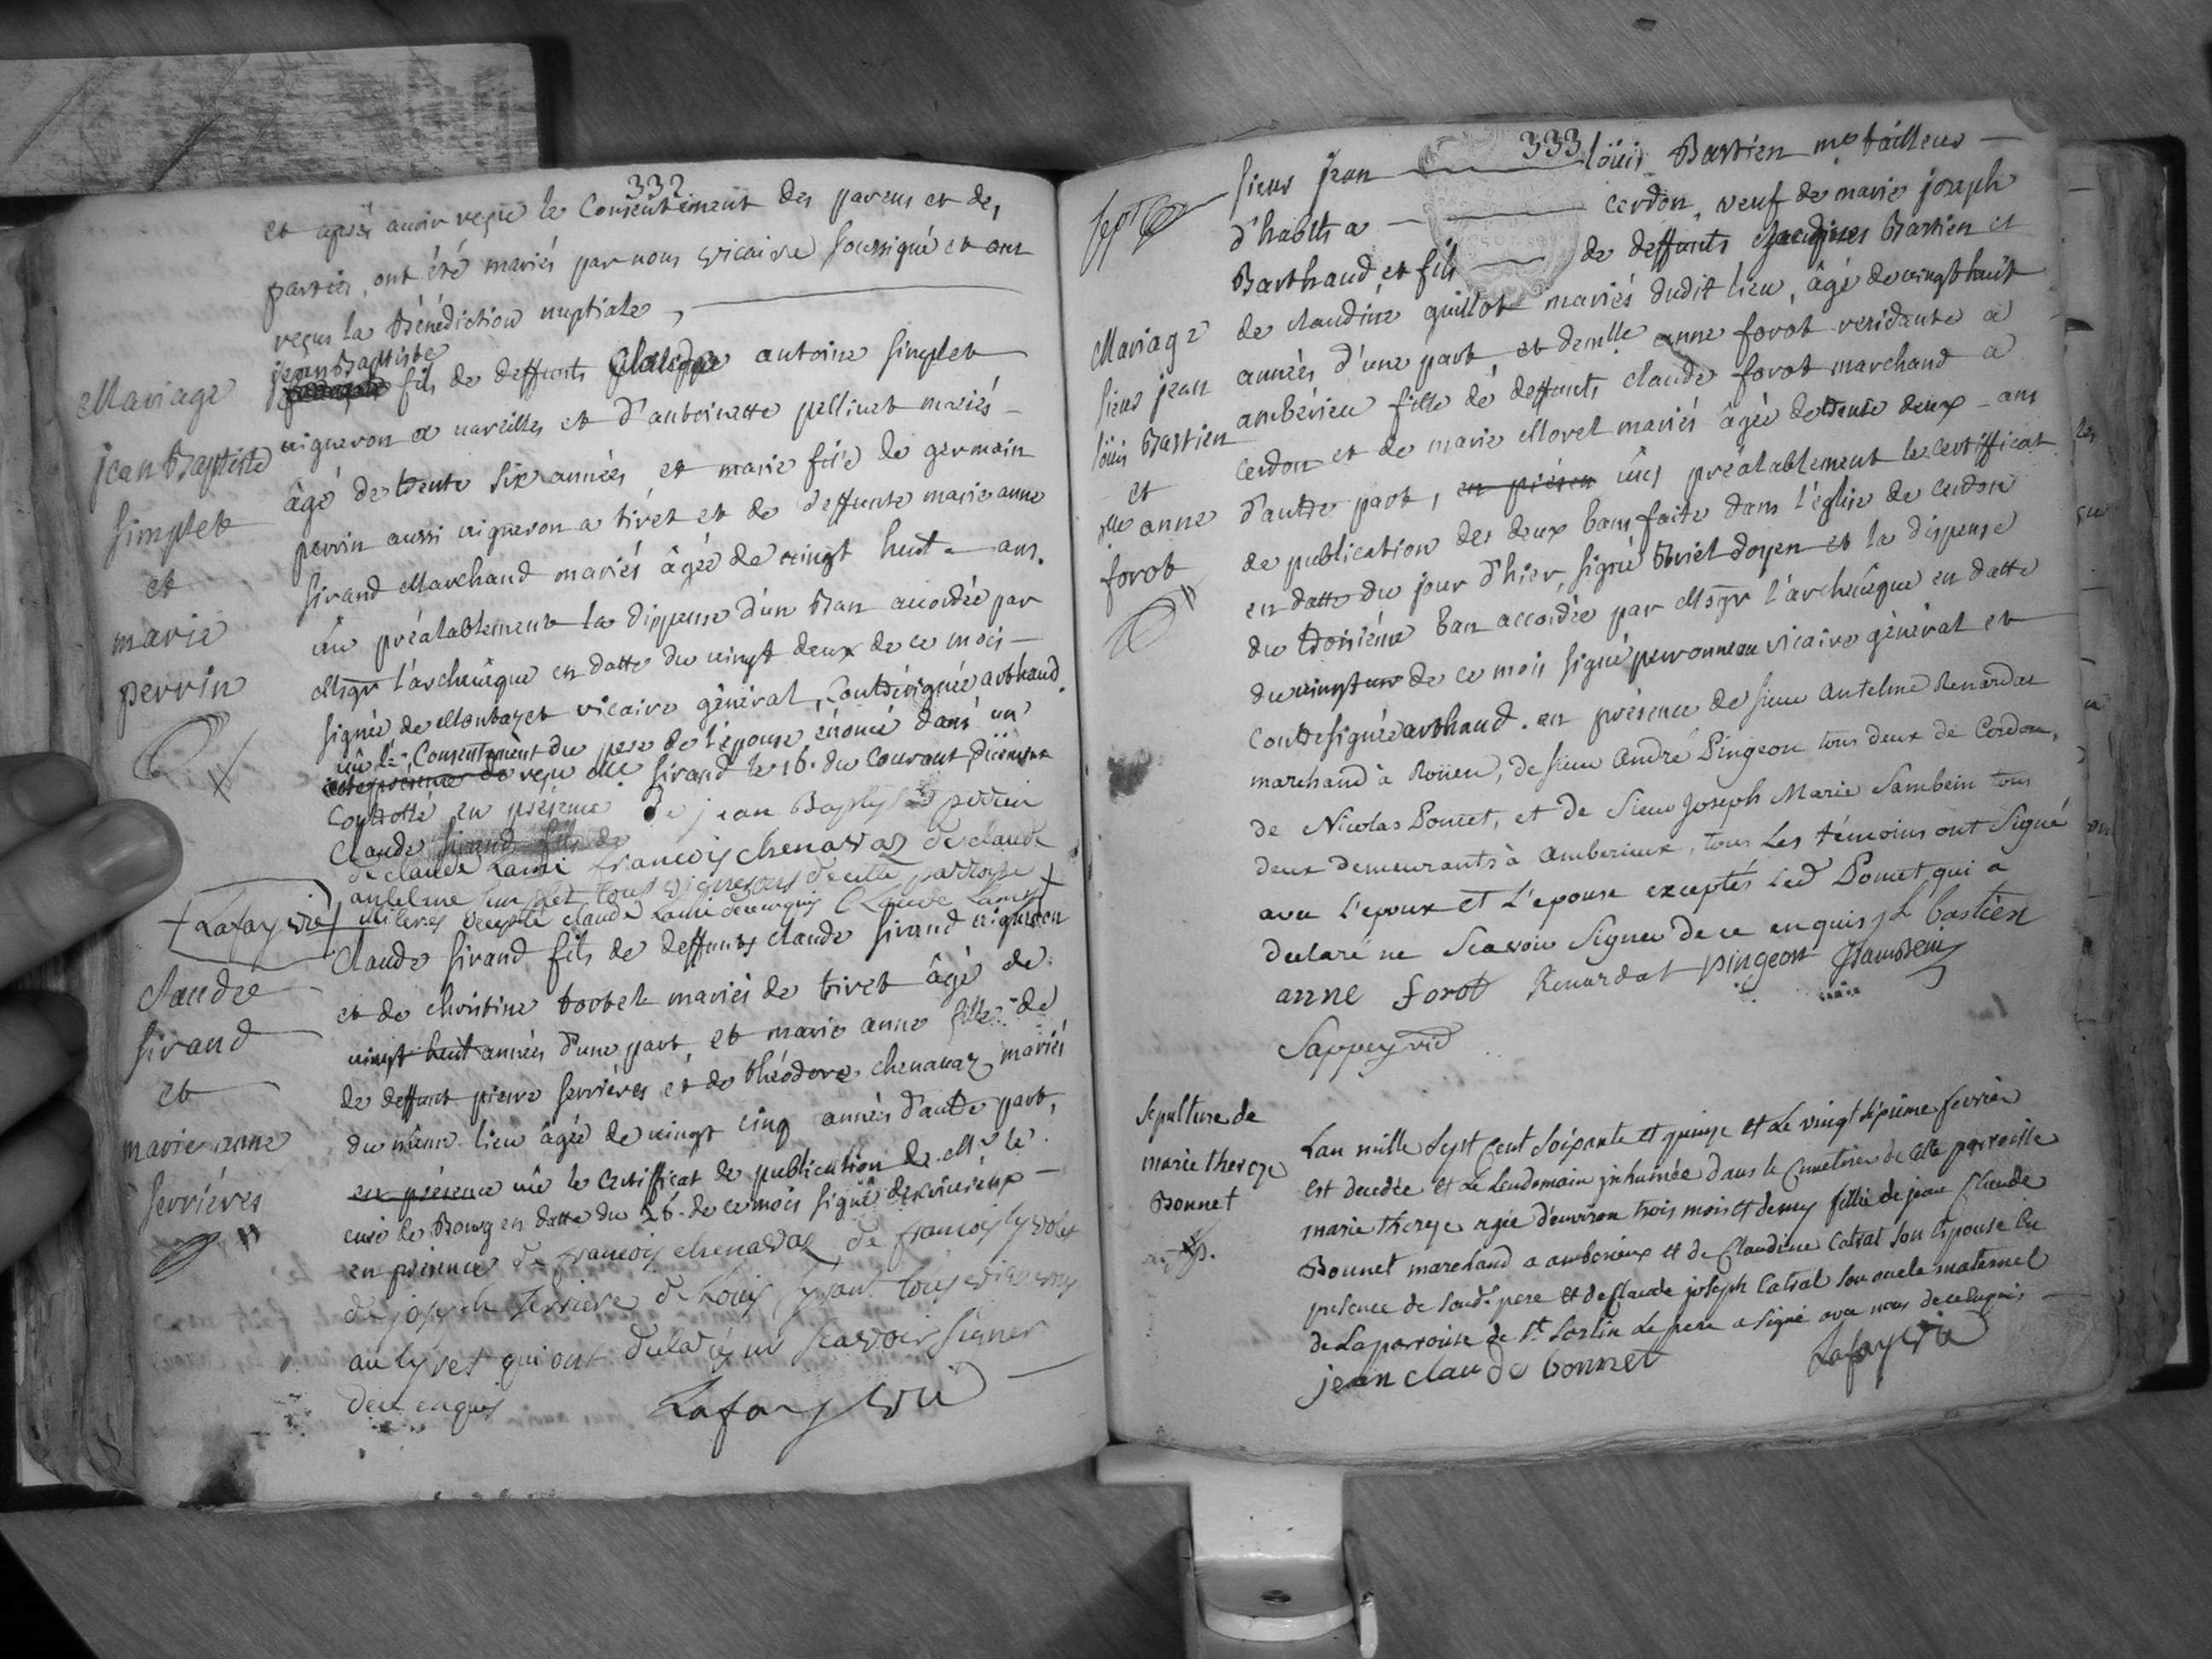 332
et après avoir reçu le Consentement des parens et des
parties, ont été mariés par nous vicaire soussigné et ont
reçus la Bénédiction nuptiale,
Mariage
jean Baptiste
simplet
et
marie
perrin
jean Baptiste
fils de deffunts antoine simplet
vigneron a vareilles et d'antoinette pellinet mariés
âgé de trente six années et marie fille de germain
perrin aussi vigneron a tiret et de deffunte marie anne
sirand Marchand mariés âgée de vingt huit ans.
vû préalablement la dispense d'un Ban accordée par
Msgr l'archevêque en datte du vingt deux de ce mois
signée de Montazet vicaire général, Contresignée arthaud
vû le Consentement du pere de l'épouse énoncé dans un
reçu Me sirand le 16. du Courant
Controllé en présence de jean Baptiste perrin
Claude sirand fils de
de claude Lami francois chenavaz de claude
antelme simplet tous vignerons de cette parroisse
illiteres excepté claude Lami de ce enquis Claude Lamy
+ Lafay vic +
claude
sirand
et
marie anne
serrières
Claude sirand fils de deffunts claude sirand vigneron
et de christine tortel mariés de tiret âgé de
vingt huit années d'une part, et marie anne fille de
de deffunt pierre serrières et de théodore chenavaz mariés
du même lieu âgée de vingt cinq années d'autre part,
en présence vû le Certifficat de publication de Mr le
curé de Bourg en datte du 26. de ce mois signé
en présence de francois chenavaz de francois
de joseph serriere de Louis tous vignerons
au tyret qui ont declaré ne scavoir signer
de ce enquis Lafay vic
333
sieur jean löuis Bastien me tailleur
d'habits a cerdon, veuf de marie joseph
Barthaud et fils de deffunts Bastien et
Mariage
sieur jean
löuis Bastien
et
dlle anne
forot
de claudine guillot mariés dudit lieu, âgé de vingt huit
années d'une part et demlle anne forot residante a
ambérieu fille de deffunts claude forot marchand a
cerdon et de marie Morel mariés âgée de trente deux ans
d'autre part, en présen vûs préalablement le certifficat
de publication des deux bans faite dans l'église de cerdon
en datte du jour d'hier, signé doyen et la dispense
du troisiéme ban accordée par Msgr l'archevêque en datte
du vingt un de ce mois signé peronneau vicaire général et
Contresignée arthaud. en présence de sieur Antelme Renardat
marchand à Roüen, de sieur André Pingeon tous deux de Cerdon,
de Nicolas Pomet, et de Sieur Joseph Marie Sambein tous
deux demeurants à Amberieux, tous les témoins ont Signé
avec l'epoux et L'epouse exceptés led Pomet qui a
declaré ne Scavoir Signer de ce enquis jl bastien
anne forot Renardat pingeon JSambein
Sappey vic
Sepulture de
marie thereze
Bonnet
Lan mille Sept Cent Soixante et quinze et Le vingt sixieme fevrier
est decedée et Le Lendemain inhumée dans le Cimetiere de Cette parroisse
marie thereze agée d'environ trois mois et demy fille de jean Claude
Bonnet marchand a amberieux et de Claudine Catrat son Epouse En
presence de Soud. pere et de Claude joseph Catrat Son oncle maternel
de Laparroisse de St Sorlin Le pere a Signé avec nous de ce Enquis
jean claude bonnet Lafay vic